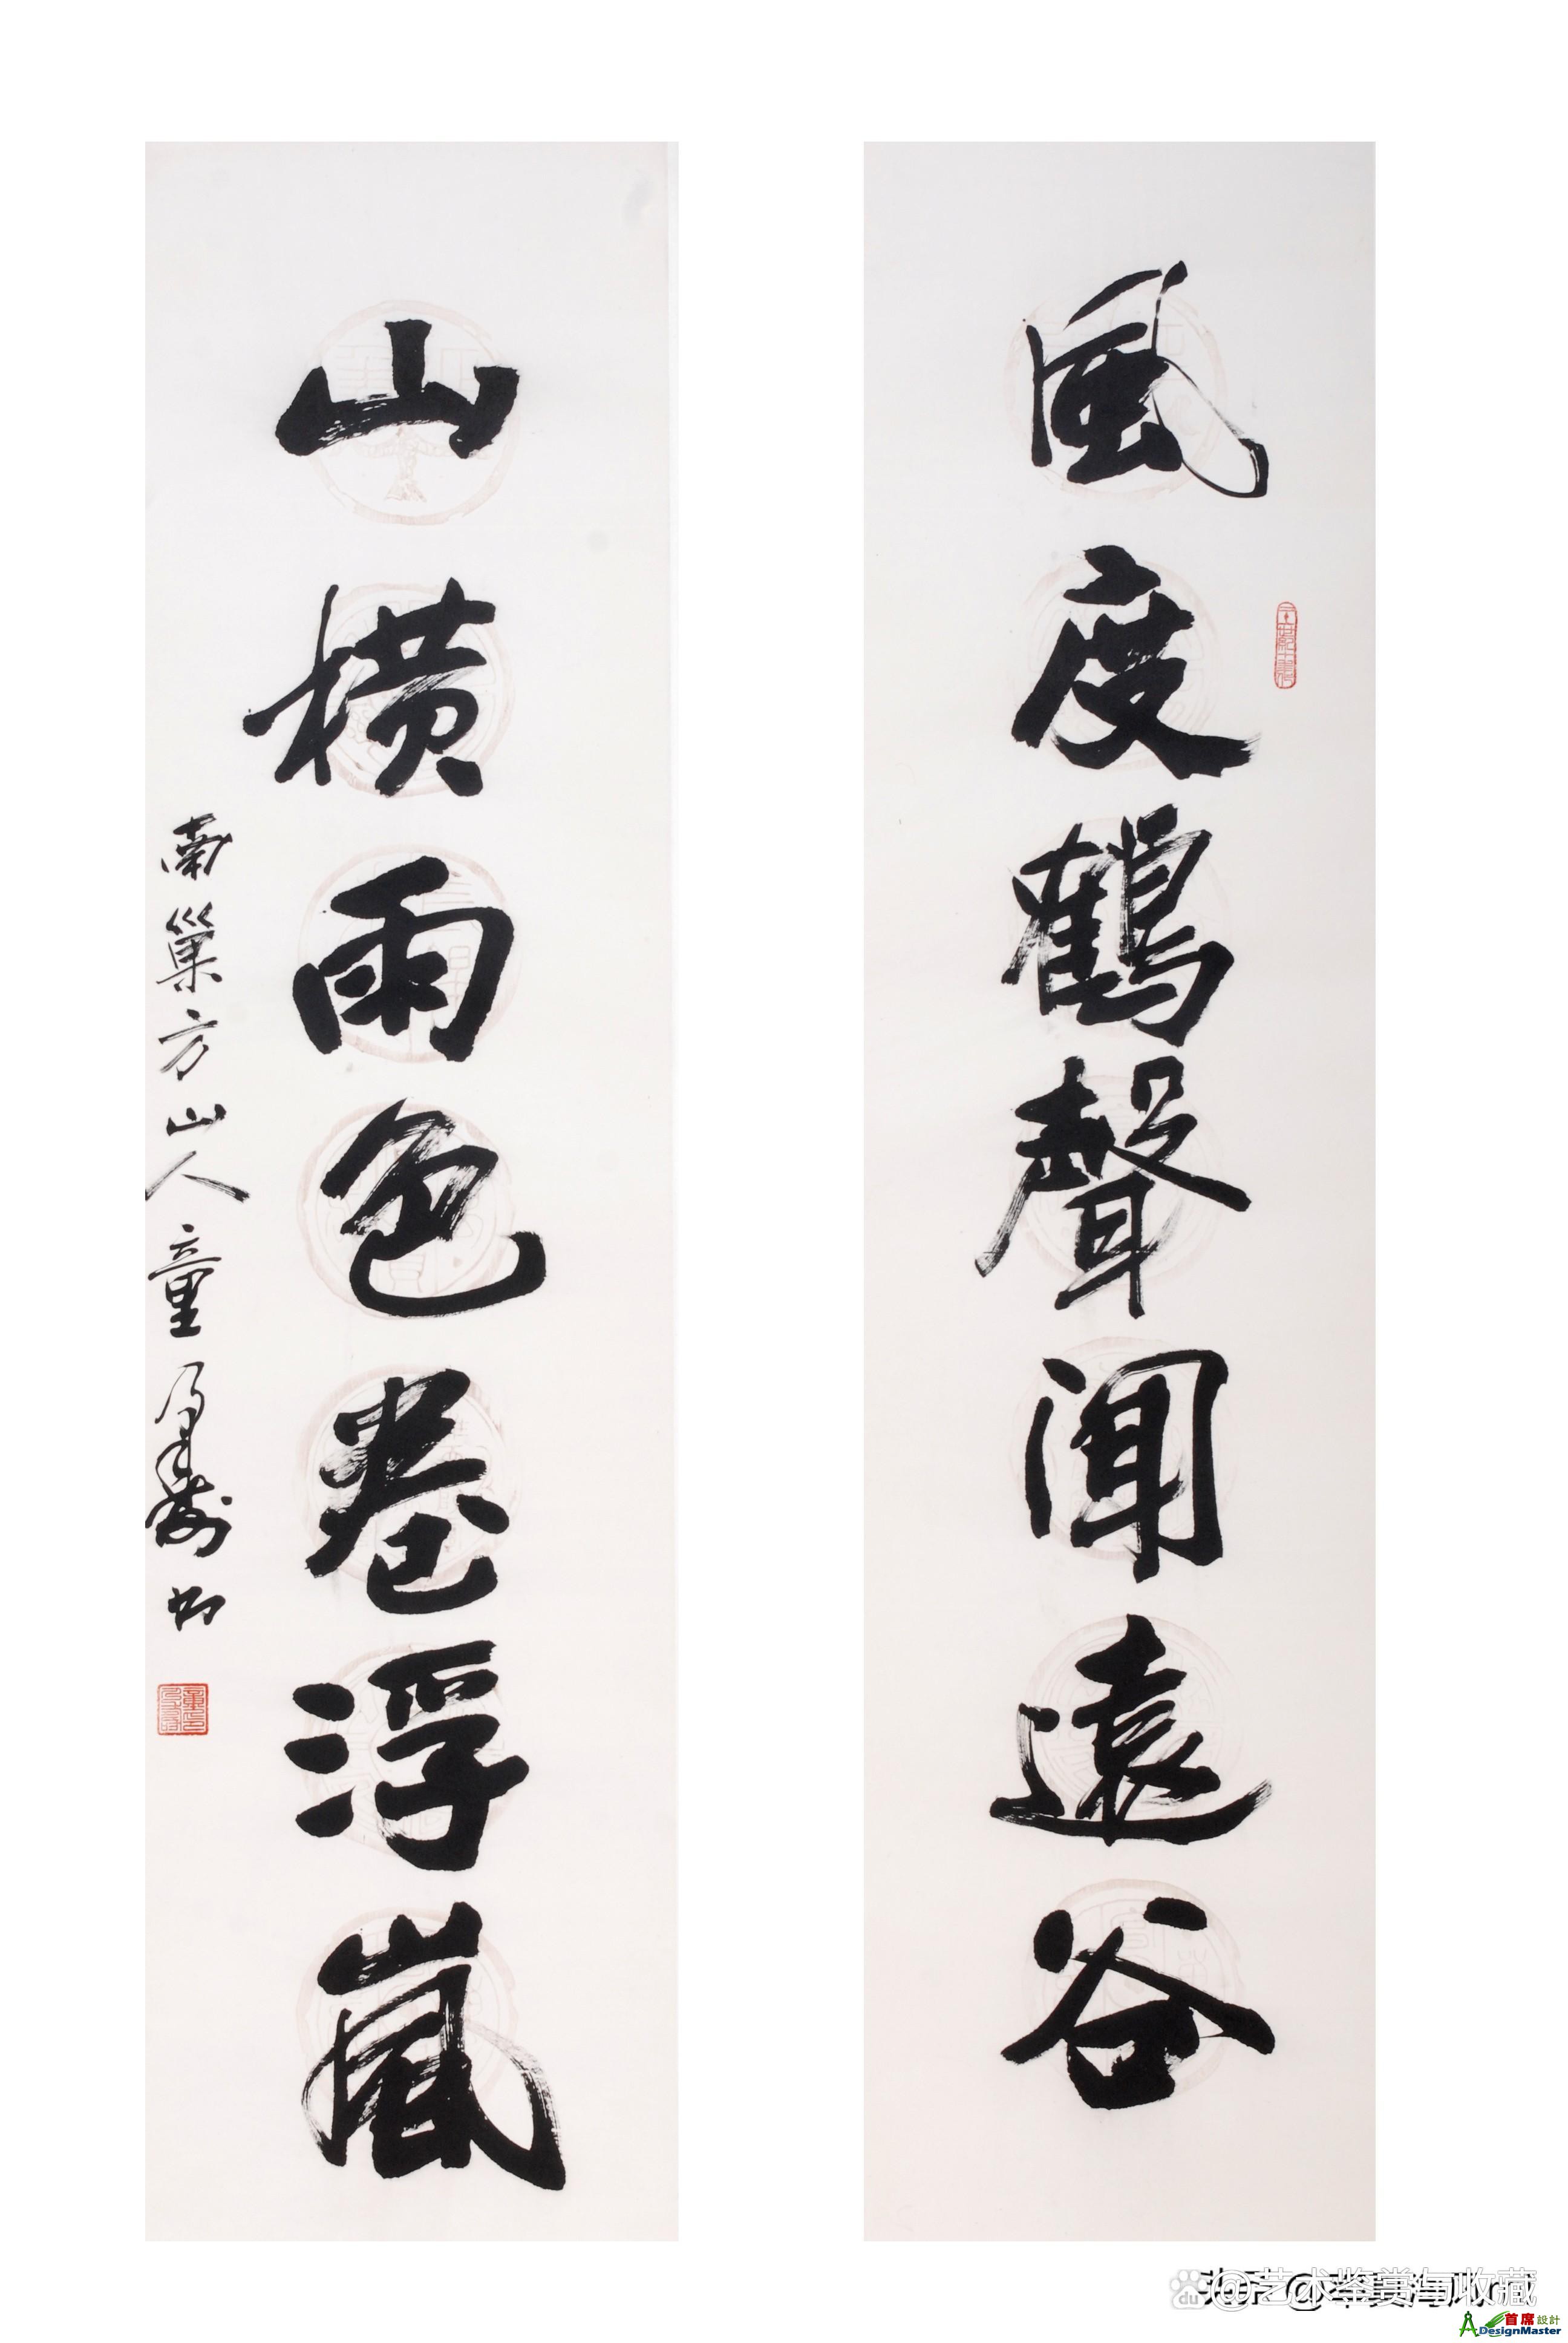 風度鶴聲聞遠谷
山橫雨色卷浮嵐
南巢方山人童
書
du
@艺术鉴赏与收藏
首席設計
ADesignMaster